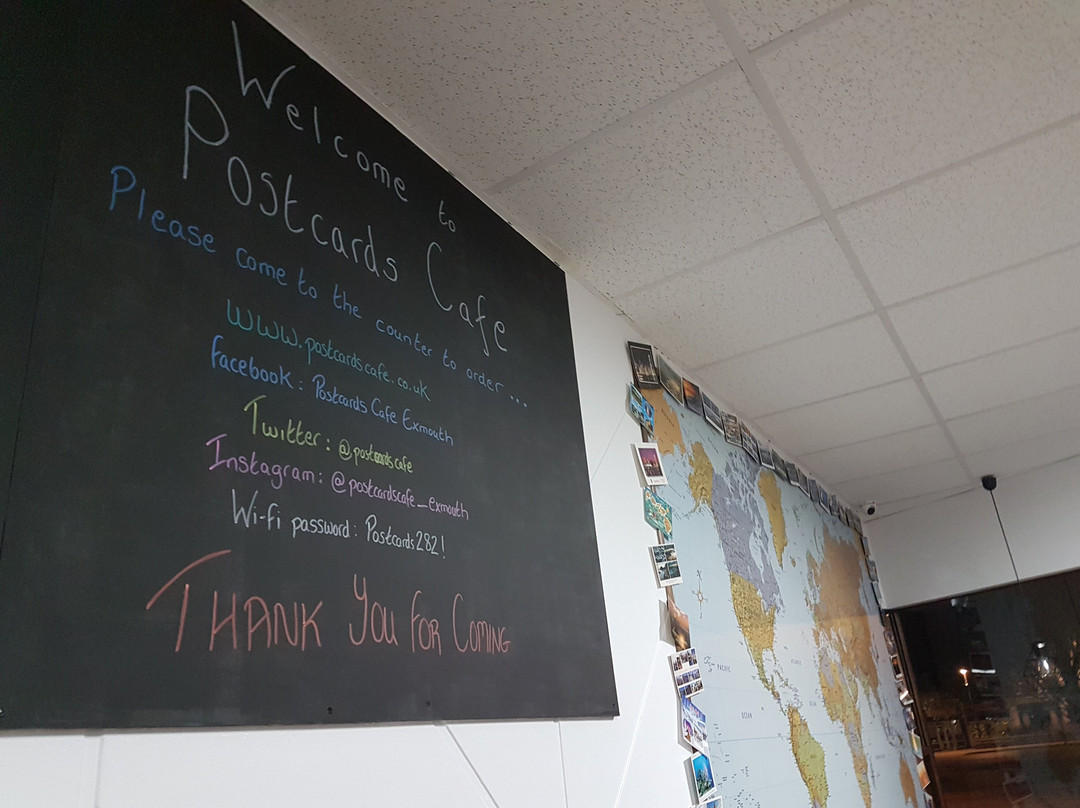 Welcome to
Postcards Cafe
Please come to the counter to order...
www.postcardscafe.co.uk
facebook: Postcards Cafe Exmouth
Twitter: @postcardscafe
Instagram: @postcardscafe_exmouth
Wi-fi password: Postcards282!
THANK YOU FOR COMING
PACIFIC
OCEAN